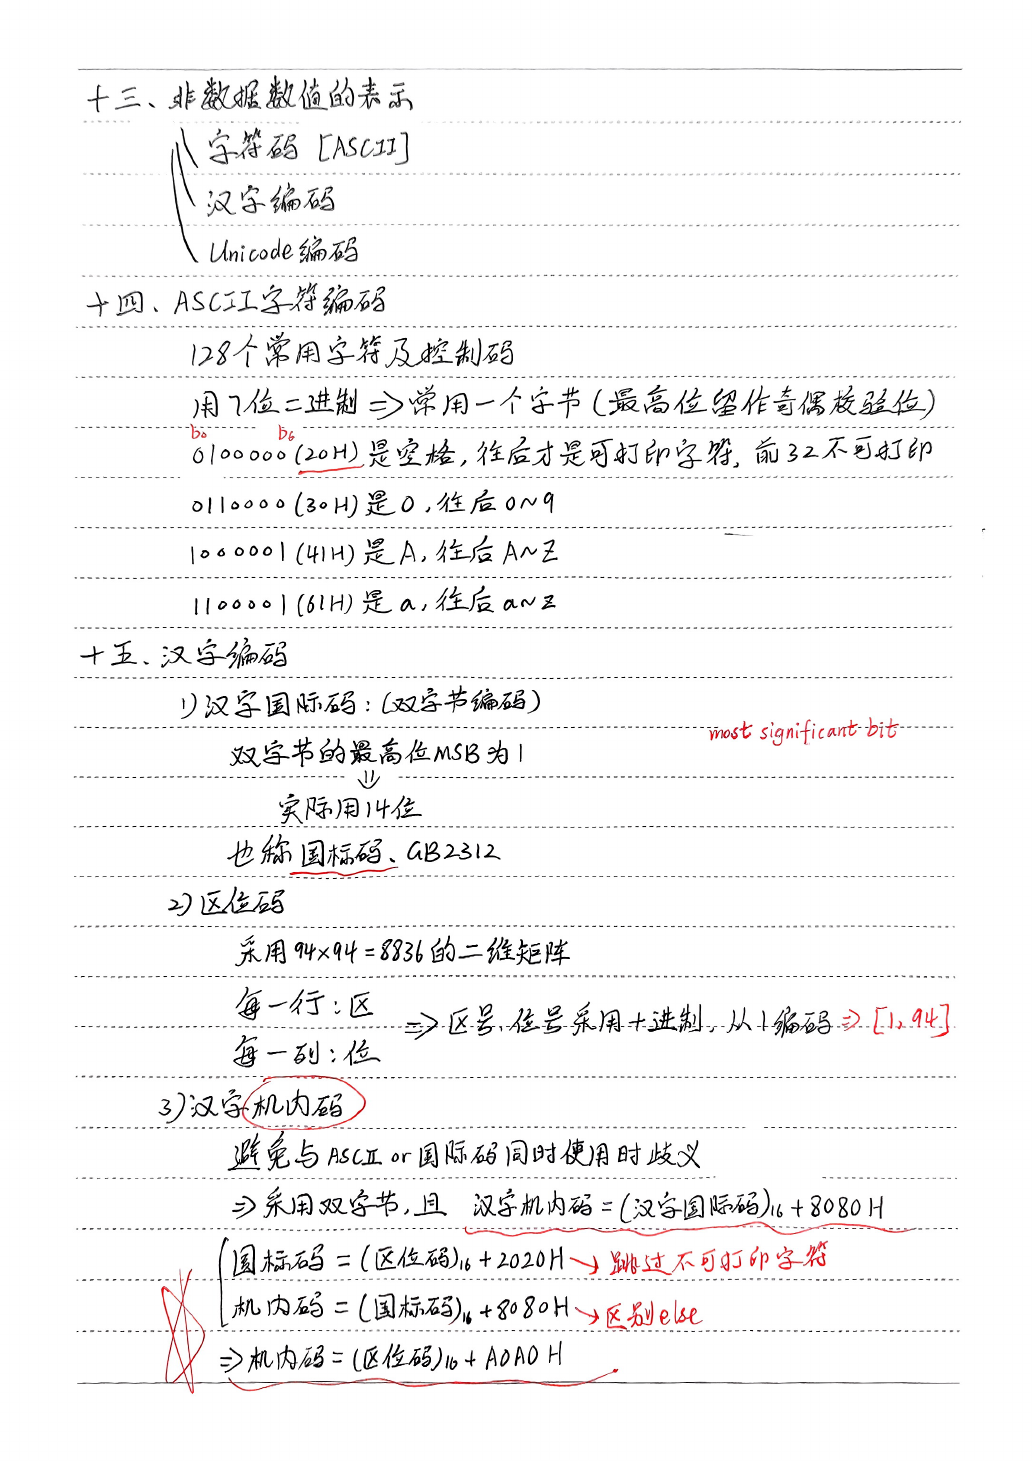 十三、非数据数值的表示
字符码 [ASCII]
汉字编码
Unicode编码
十四、ASCII字符编码
128个常用字符及控制码
用7位二进制 => 常用一个字节(最高位留作奇偶校验位)
b₀ b₆
0100000(20H)是空格,往后才是可打印字符,前32不可打印
0110000(30H)是0,往后0~9
1000001(41H)是A,往后A~Z
1100001(61H)是a,往后a~z
十五、汉字编码
1)汉字国际码:(双字节编码)
most significant bit
双字节的最高位MSB为1
⇓
实际用14位
也称国标码、GB2312
2)区位码
采用94×94=8836的二维矩阵
每一行:区
=> 区号,位号采用十进制,从1编码 => [1,94]
每一列:位
3)汉字机内码
避免与ASCII or 国际码同时使用时歧义
=> 采用双字节,且 汉字机内码=(汉字国际码)₁₆+8080H
国标码=(区位码)₁₆+2020H → 跳过不可打印字符
机内码=(国标码)₁₆+8080H → 区别else
=> 机内码=(区位码)₁₆+A0A0H